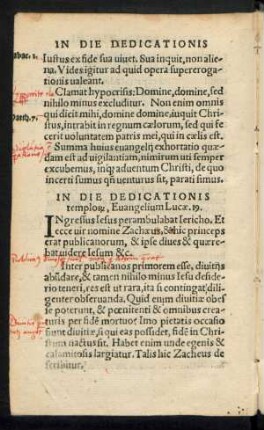 IN DIE DEDICATIONIS
Iustus ex fide sua uiuet. Sua inquit, non alie-
na. Vides igitur ad quid opera supererogati-
onis ualeant.
Clamat hypocrisis: Domine, domine, sed
nihilo minus excluditur. Non enim omnis
qui dicit mihi, domine domine, inquit Chri-
stus, intrabit in regnum cælorum, sed qui fe
cerit uoluntatem patris mei, qui in cælis est.
Summa huius euangelij exhortatio quæ-
dam est ad uigilantiam, nimirum uti semper
excubemus, inq; aduentum Christi, de quo
incerti sumus qñ uenturus sit, parati simus.
IN DIE DEDICATIONIS
templorū, Euangelium Lucæ. 19.
INgressus Iesus perambulabat Iericho. Et
ecce uir nomine Zachæus, & hic princeps
erat publicanorum, & ipse diues & quære-
bat uidere Iesum &c.
Inter publicanos primorem esse, diuitijs
absidare, & tamen nihilo minus Iesu deside
rio teneri, res est ut rara, ita si contingat, dili-
genter obseruanda. Quid enim diuitiæ obes
se poterunt, & pœnitenti & omnibus crea-
turis per fidē mortuo? Imo pietatis occasio
sunt diuitiæ, si qui eas possidet, fide in Chri-
stum nactus sit. Habet enim unde egenis &
calamitosis largiatur. Talis hic Zacheus de
scribitur.